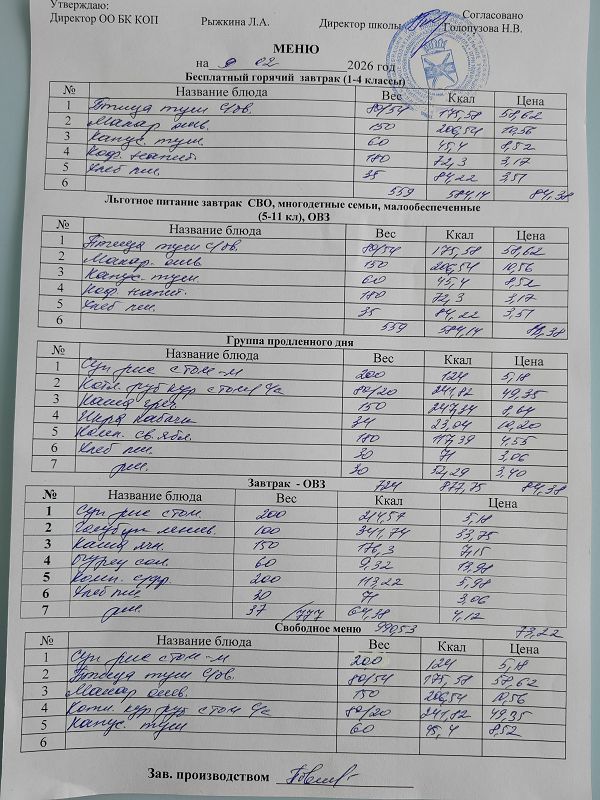 Утверждаю: Согласовано
Директор ОО БК КОП Рыжкина Л.А. Директор школы Голопузова Н.В.
МЕНЮ
на 9 02 2026 год
Бесплатный горячий завтрак (1-4 классы)
№ Название блюда Вес Ккал Цена
1 Птица туш с/ов. 80/54 175,58 58,62
2 Макар отв. 150 206,54 10,56
3 Капус. туш. 60 45,4 8,52
4 Коф. напит. 180 72,3 3,17
5 Хлеб пш. 35 84,22 3,51
6 559 584,14 84,38
Льготное питание завтрак СВО, многодетные семьи, малообеспеченные
(5-11 кл), ОВЗ
№ Название блюда Вес Ккал Цена
1 Птица туш с/ов. 80/54 175,58 58,62
2 Макар. отв. 150 206,54 10,56
3 Капус. туш. 60 45,4 8,52
4 Коф напит. 180 72,3 3,17
5 Хлеб пш. 35 84,22 3,51
6 559 584,14 84,38
Группа продленного дня
№ Название блюда Вес Ккал Цена
1 Суп рис с том-м 200 124 5,18
2 Котл. руб кур с том 80/20 241,82 49,35
3 Каша греч 150 8,64
4 Икра кабачк 34 23,04 10,20
5 Комп. св. ябл. 180 117,39 4,55
6 Хлеб пш. 30 71 3,06
7 рж. 30 3,40
724 877,75 84,38
Завтрак - ОВЗ
№ Название блюда Вес Ккал Цена
1 Суп рис с том. 200 214,57 5,18
2 Голубцы ленив. 100 341,74 33,75
3 Каша ячн. 150 176,3 7,15
4 Огурец сол. 60 9,32 13,98
5 Комп. с/фр. 200 113,22 5,98
6 Хлеб пш. 30 71 3,06
7 рж. 37 /777 64,38 4,12
Свободное меню 990,53 73,22
№ Название блюда Вес Ккал Цена
1 Суп рис с том-м 200 124 5,18
2 Птица туш с/ов. 80/54 175,58 58,62
3 Макар отв. 150 206,54 10,56
4 Котл. кур руб с том 80/20 241,82 49,35
5 Капус. туш 60 45,4 8,52
6
Зав. производством